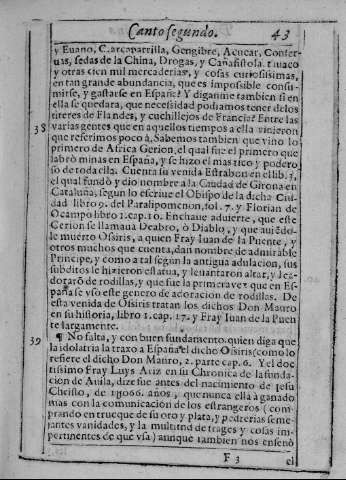 Canto segundo. 43
y Euano, Carcaparrilla, Gengibre, Açucar, Conser-
uas, sedas de la China, Drogas, y Cañafistola. Tauaco
y otras cien mil mercaderias, y cosas curiosissimas,
en tan grande abundancia, que es impossible consu-
mirse, y gastarse en España? Y diganme tambien si en
ella se quedara, que necessidad podiamos tener de los
titeres de Flandes, y cuchillejos de Francia? Entre las
38 varias gentes que en aquellos tiempos a ella vinieron
que referimos poco à, Sabemos tambien que vino lo
primero de Africa Gerion, el qual fue el primero que
labrò minas en España, y se hizo el mas rico y podero
so de toda ella. Cuenta su venida Estrabon en el lib. 3.
el qual fundò y dio nombre a la Ciudad de Girona en
Cataluña, segun lo escriue el Obispo de la dicha Ciu
dad libro 2. del Paralipomenon, fol. 7. y Florian de
Ocampo libro 1. cap. 10. Enchaue aduierte, que este
Gerion se llamaua Deabro, ò Diablo, y que auiẽdo-
le muerto Osiris, a quien Fray Iuan de la Puente, y
otros muchos que cuenta, dan nombre de admirable
Principe, y como a tal segun la antigua adulacion, sus
subditos le hizieron estatua, y leuantaron altar, y le a-
dorarõ de rodillas, y que fue la primera vez que en Es-
paña se vso este genero de adoracion de rodillas. De
esta venida de Osiris tratan los dichos Don Mauro
en su historia, libro 1. cap. 17. y Fray Iuan de la Puen
te largamente.
39 ¶ No falta, y con buen fundamento, quien diga que
la idolatria la traxo a España el dicho Osiris (como lo
refiere el dicho Don Mauro, 2. parte cap. 6. Y el doc
tissimo Fray Luys Ariz en su Chronica de la funda-
cion de Auila, dize fue antes del nacimiento de Iesu
Christo, de años, que nunca ella à ganado
mas con la comunicacion de los estrangeros (com-
prando en trueque de su oro y plata, y pedrerias seme-
jantes vanidades, y la multitud de trages y cosas im-
pertinentes de que vsa) aunque tambien nos enseñò
F 3 el